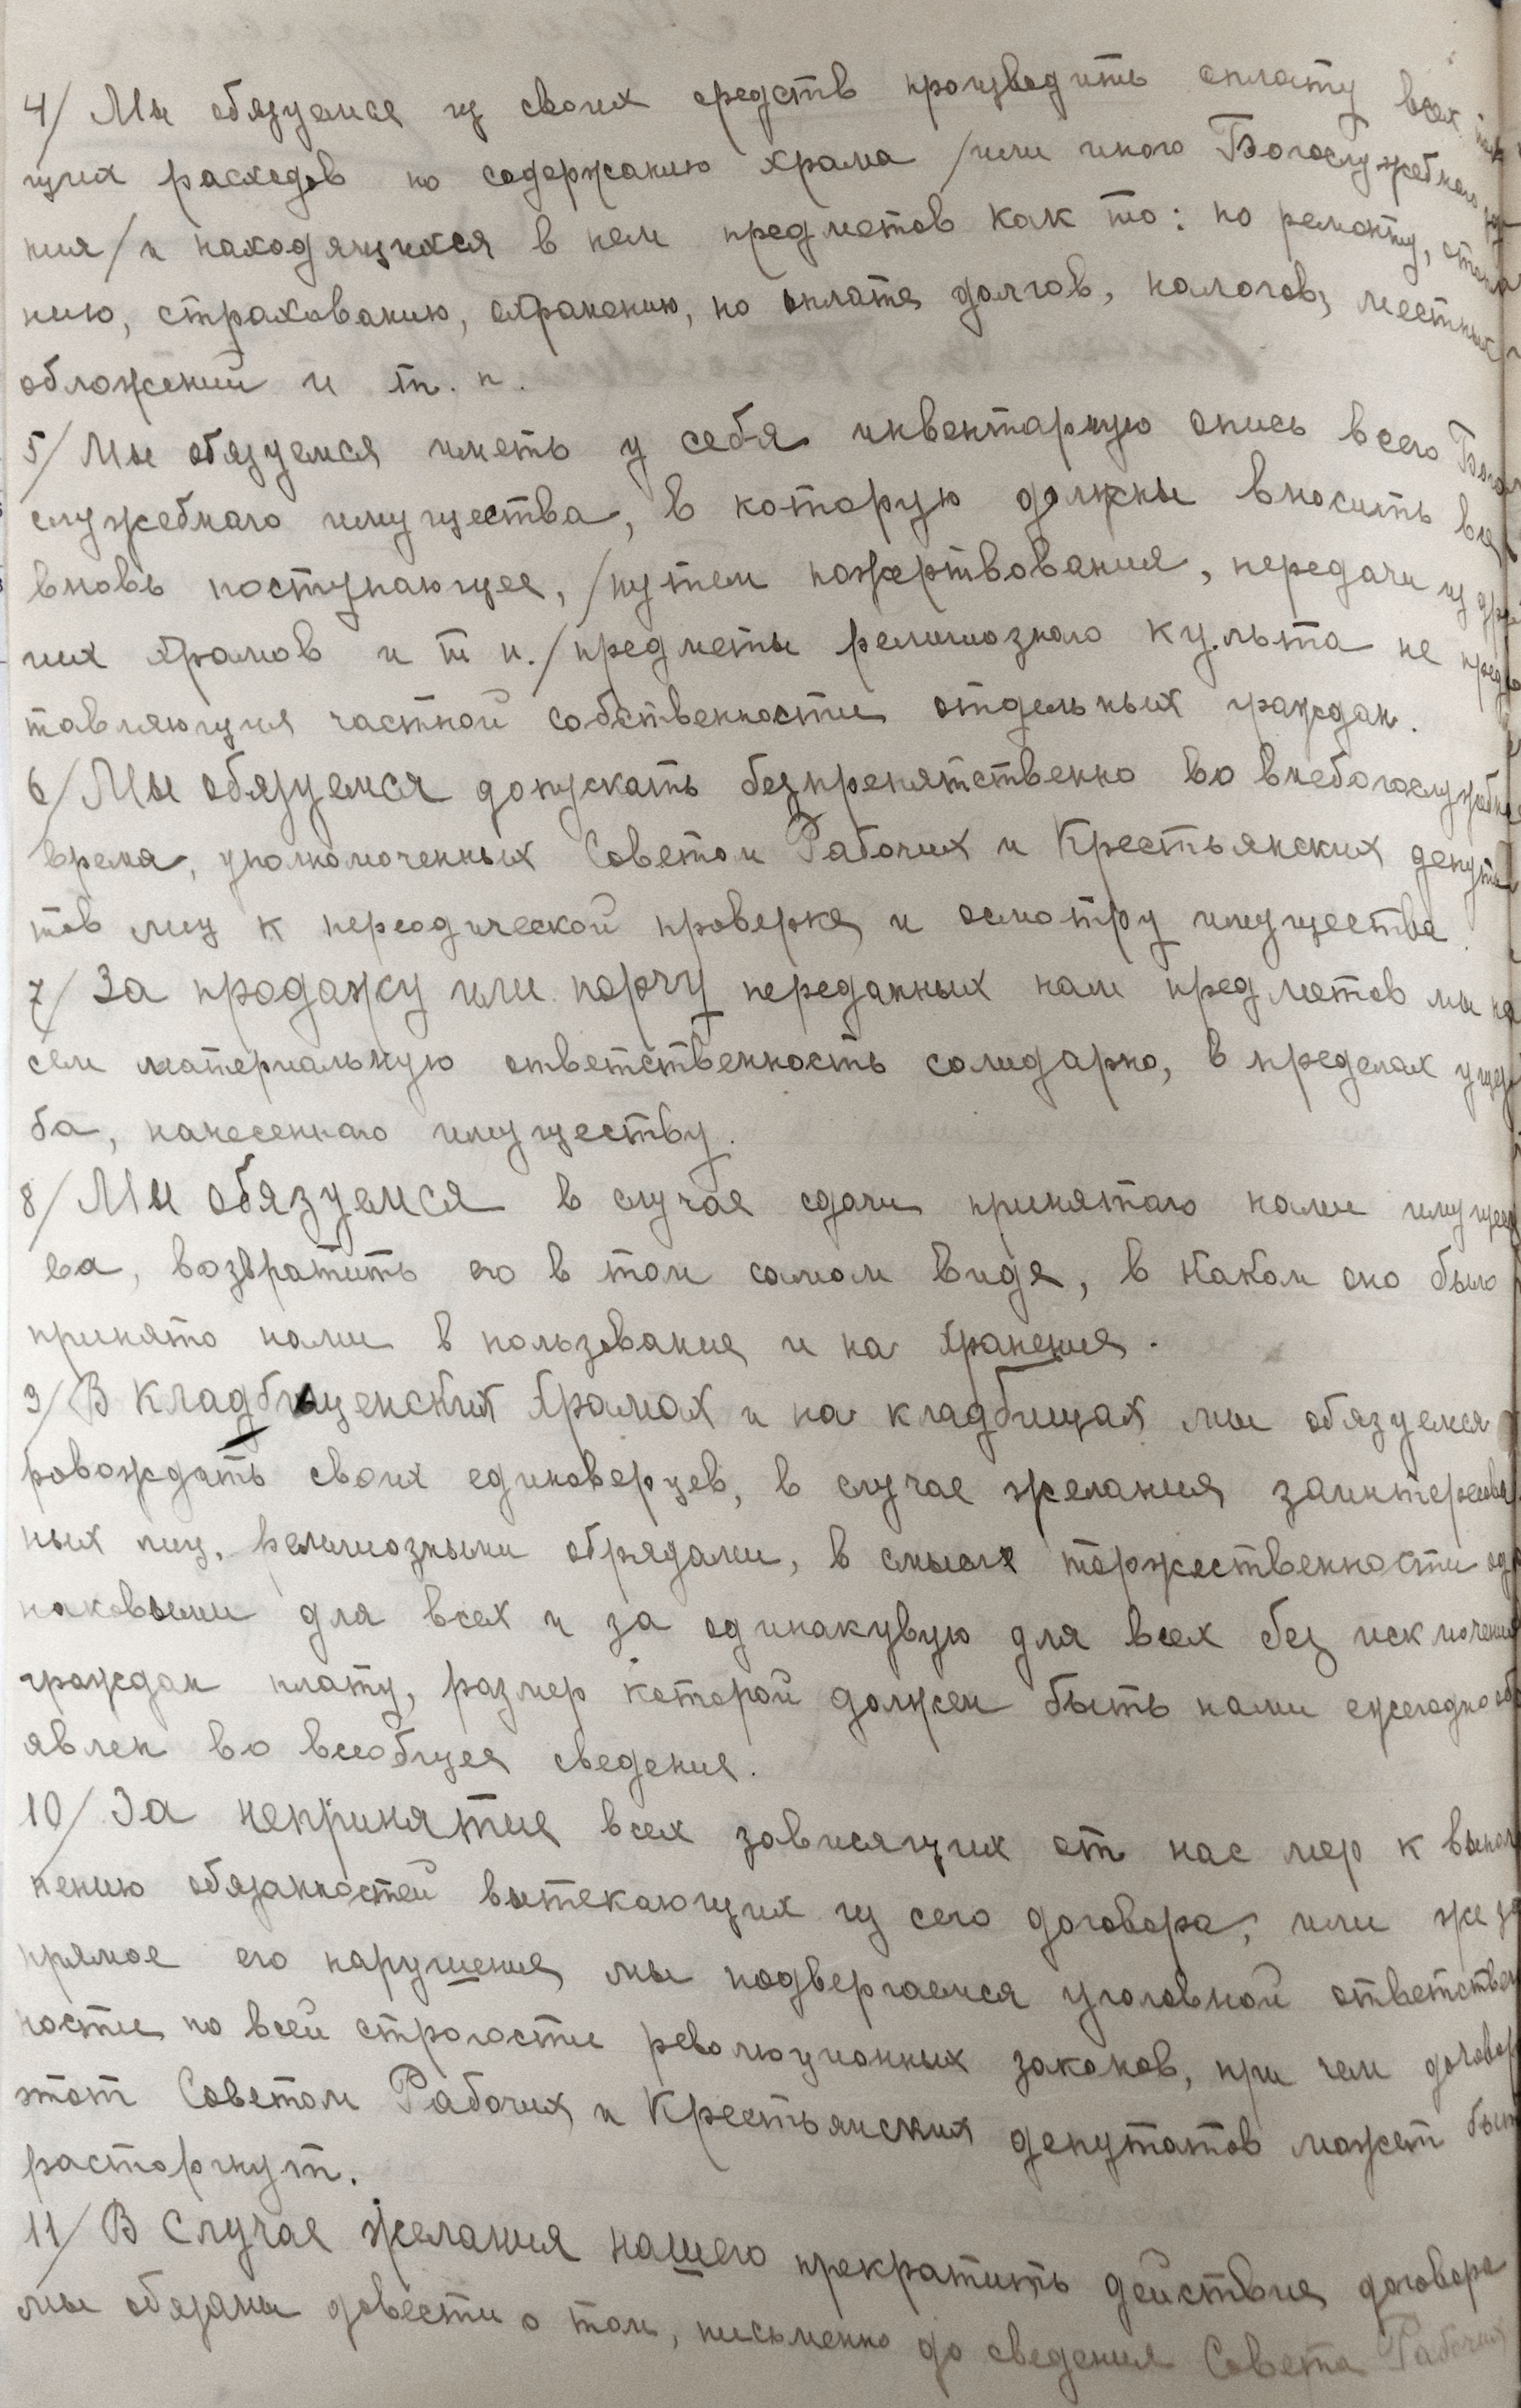 4/ Мы обязуемся из своих средств производить оплату всех
щих расходов по содержанию храма /или иного Богослужебного
ния/ и находящихся в нем предметов как то: по ремонту,
нию, страхованию, охранению, по оплате долгов, налогов, местных
обложений и т. п.
5/ Мы обязуемся иметь у себя инвентарную опись всего Бого
служебного имущества, в которую должны вносить все
вновь поступающее, /путем пожертвования, передачи из дру
гих храмов и т п./ предметы религиозного культа не предс
тавляющия частной собственности отдельных граждан.
6/ Мы обязуемся допускать безпрепятственно во внебогослужебное
время, уполномоченных Советом Рабочих и Крестьянских депута
тов лиц к переодической проверке и осмотру имущества.
7/ За продажу или порчу переданных нам предметов мы не
сем материальную ответственность солидарно, в пределах ущер
ба, нанесенного имуществу.
8/ Мы обязуемся в случае сдачи принятого нами имущес
ва, возвратить его в том самом виде, в каком оно было
принято нами в пользование и на хранение.
9/ В кладбищенских храмах и на кладбищах мы обязуемся
ровождать своих единоверцев, в случае желания заинтересован
ных лиц, религиозными обрядами, в смысле торжественности оди
наковыми для всех и за одинакувую для всех без исключения
граждан плату, размер которой должен быть нами ежегодно об
явлен во всеобщее сведение.
10/ За непринятие всех зависящих от нас мер к выпол
нению обязанностей вытекающих из сего договора, или же за
прямое его нарушение, мы подвергаемся уголовной ответствен
ности по всей строгости революционных законов, при чем договор
этот Советом Рабочих и Крестьянских депутатов может быть
расторгнут.
11/ В случае желания нашего прекратить действие договора
мы обязаны довести о том, письменно до сведения Совета Рабочих